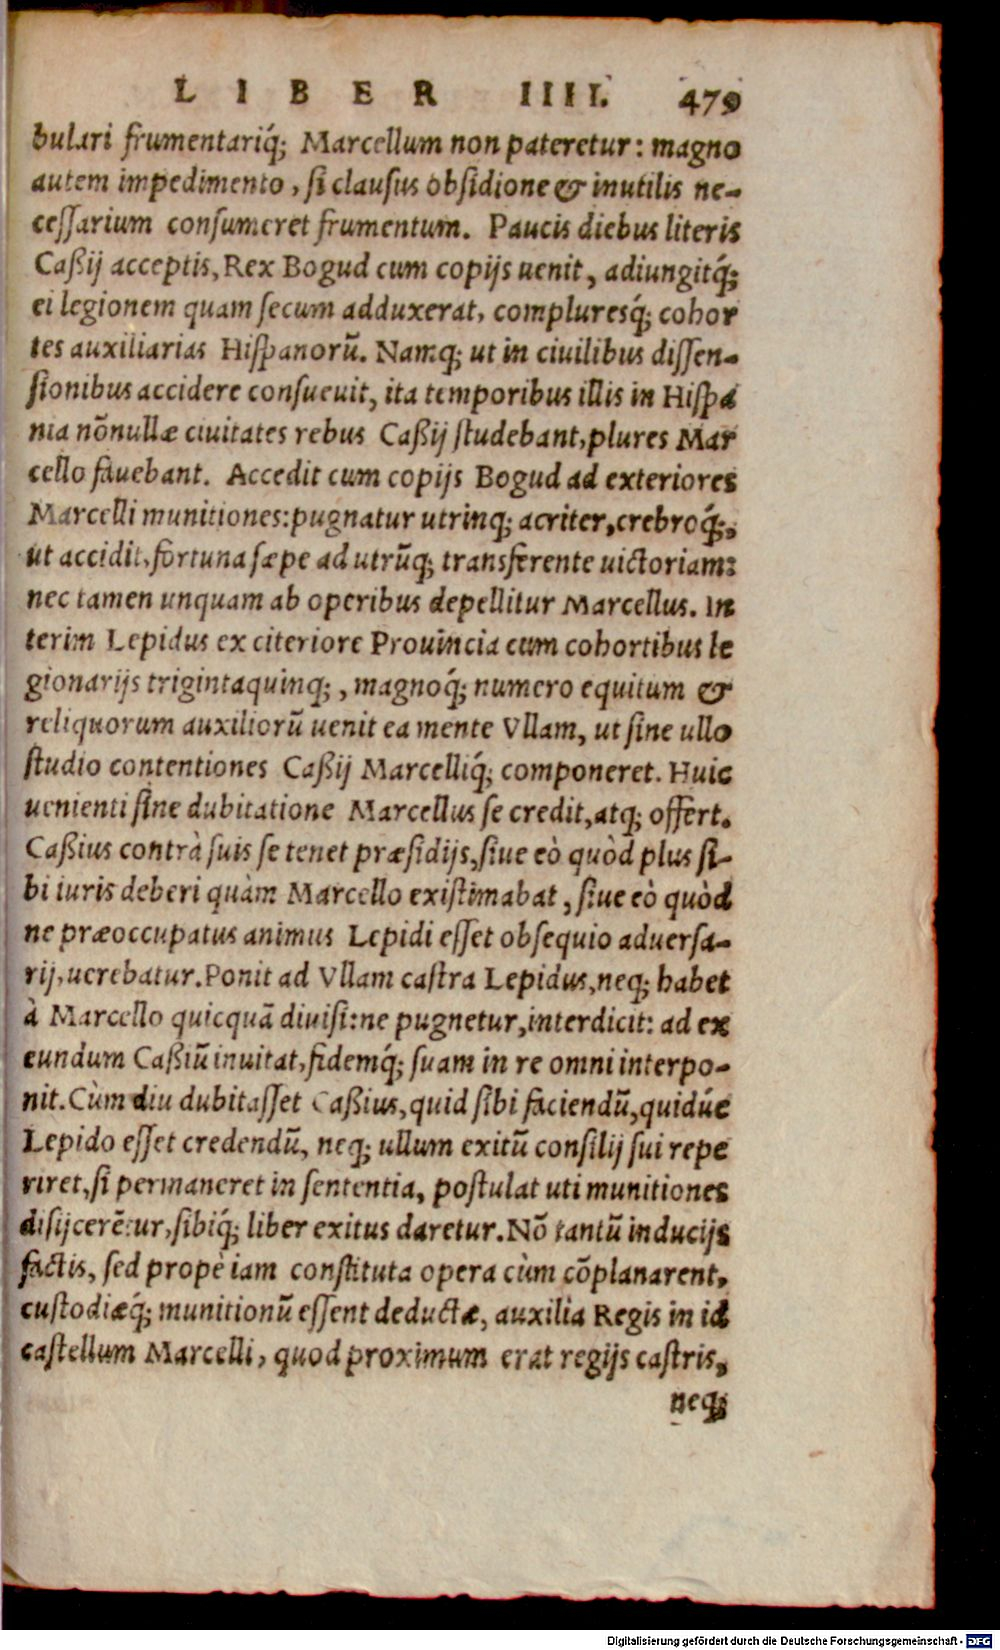 LIBER IIII. 479
bulari frumentariq́; Marcellum non pateretur: magno
autem impedimento, si clausus obsidione & inutilis ne-
cessarium consumeret frumentum. Paucis diebus literis
Caßij acceptis, Rex Bogud cum copijs uenit, adiungitq́;
ei legionem quam secum adduxerat, compluresq́; cohor
tes auxiliarias Hispanorū. Namq; ut in ciuilibus dissen-
sionibus accidere consueuit, ita temporibus illis in Hispa
nia nōnullæ ciuitates rebus Caßij studebant, plures Mar
cello fauebant. Accedit cum copijs Bogud ad exteriores
Marcelli munitiones: pugnatur utrinq; acriter, crebroq́;,
ut accidit, fortuna sæpe ad utrūq; transferente uictoriam:
nec tamen unquam ab operibus depellitur Marcellus. In
terim Lepidus ex citeriore Prouincia cum cohortibus le
gionarijs trigintaquinq;, magnoq́; numero equitum &
reliquorum auxiliorū uenit ea mente Vllam, ut sine ullo
studio contentiones Caßij Marcelliq́; componeret. Huic
uenienti sine dubitatione Marcellus se credit, atq; offert.
Caßius contrà suis se tenet præsidijs, siue eò quòd plus si-
bi iuris deberi quàm Marcello existimabat, siue eò quòd
ne præoccupatus animus Lepidi esset obsequio aduersa-
rij, uerebatur. Ponit ad Vllam castra Lepidus, neq; habet
à Marcello quicquā diuisi: ne pugnetur, interdicit: ad ex
eundum Caßiū inuitat, fidemq́; suam in re omni interpo-
nit. Cùm diu dubitasset Caßius, quid sibi faciendū, quidúe
Lepido esset credendū, neq; ullum exitū consilij sui repe
riret, si permaneret in sententia, postulat uti munitiones
disijcerētur, sibiq́; liber exitus daretur. Nō tantū inducijs
factis, sed propè iam constituta opera cùm cōplanarent,
custodiæq́; munitionū essent deductæ, auxilia Regis in id
castellum Marcelli, quod proximum erat regijs castris,
neq;
Digitalisierung gefördert durch die Deutsche Forschungsgemeinschaft - DFG